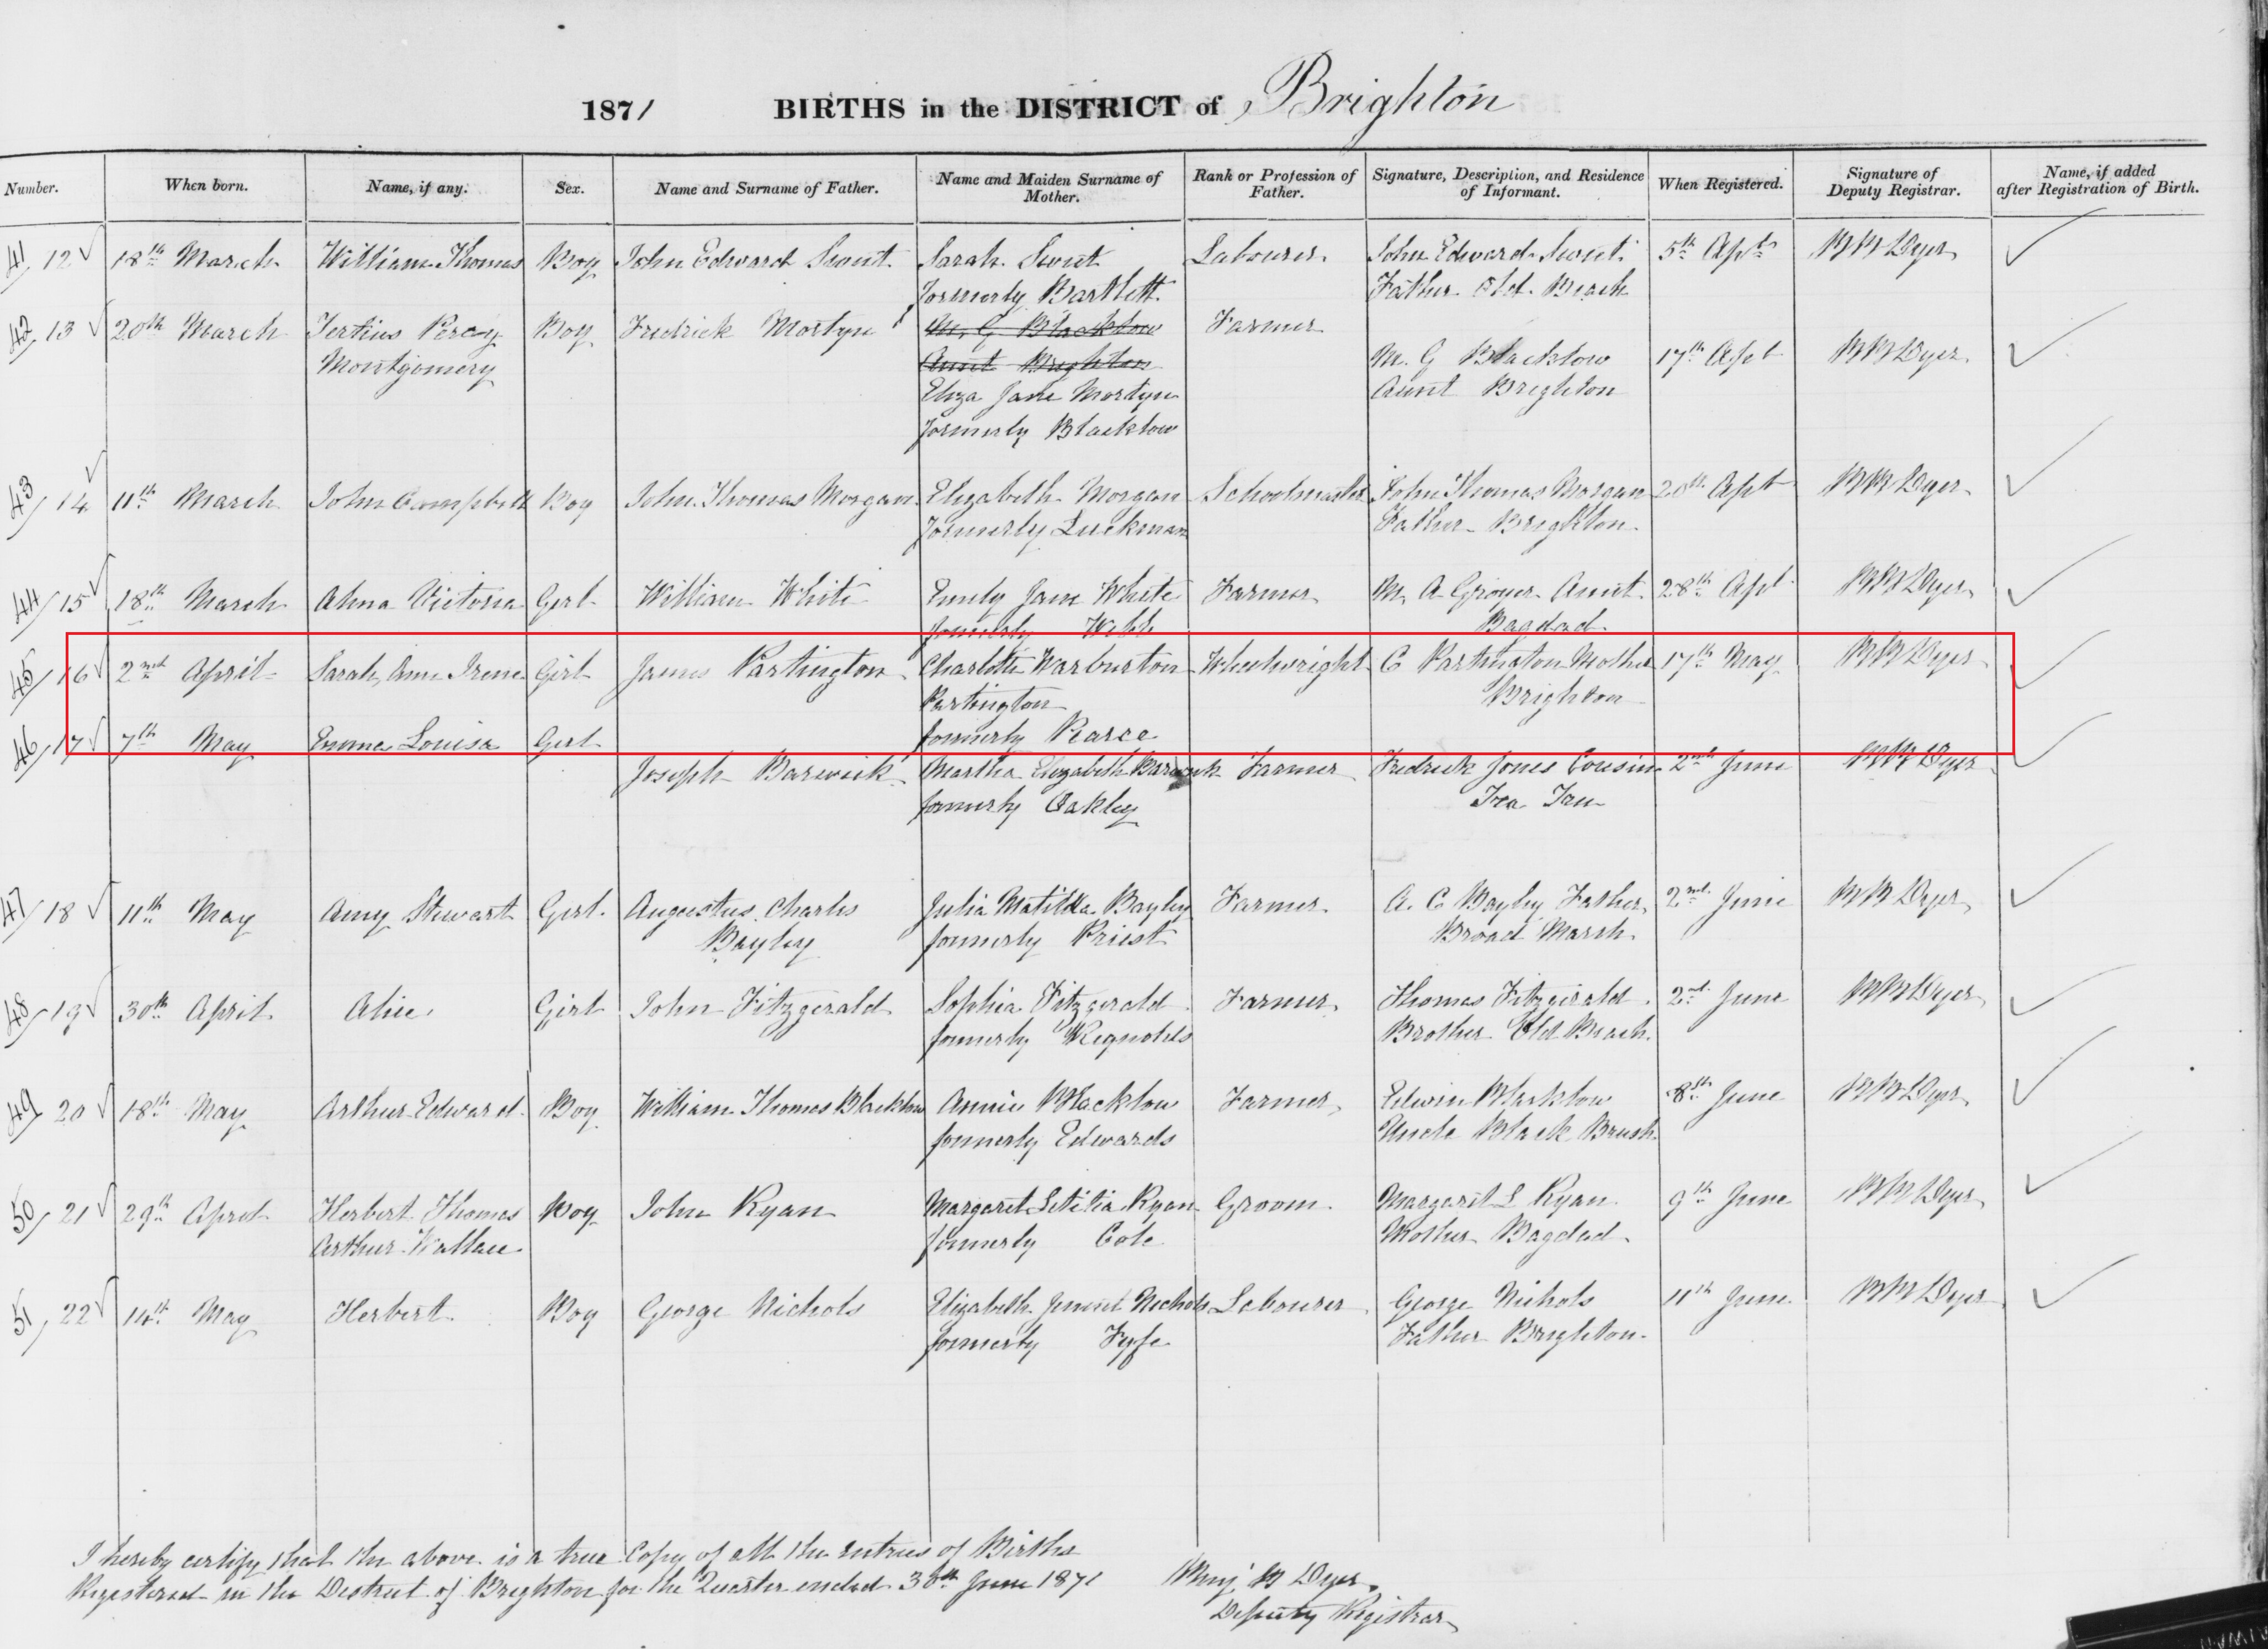 1871 BIRTHS in the DISTRICT of Brighton
Number. When born. Name, if any. Sex. Name and Surname of Father. Name and Maiden Surname of Mother. Rank or Profession of Father. Signature, Description, and Residence of Informant. When Registered. Signature of Deputy Registrar. Name, if added after Registration of Birth.
41/12 18th March William Thomas Boy John Edward Swut Sarah Labourer John Edward 5th Apt Dyer
formerly Bartlett Father Old Beach
42/13 20th March Tertius Percy Boy Fredrick Mortyn M. G Blacklow Farmer
Montgomery Aunt Brighton M. G Blacklow 17th Apt Dyer
Eliza Jane Mortyn Aunt Brighton
formerly Blacklow
43/14 11th March John Campbell Boy John Thomas Morgan Elizabeth Morgan Schoolmaster John Thomas Morgan 20th Apt Dyer
formerly Luckman Father Brighton
44/15 18th March Alma Victoria Girl William White Emily Jane White Farmer M. A. Aunt 28th Apt Dyer
formerly Webb Bagdad
45/16 2nd April Sarah Anne Irene Girl James Partington Charlotte Warburton Wheelwright C Partington Mother 17th May Dyer
Partington Brighton
formerly Pearce
46/17 7th May Emma Louisa Girl
Joseph Barwick Martha Elizabeth Barwick Farmer Fredrick Jones Cousin 2nd June Dyer
formerly Oakley Tea Tree
47/18 11th May Amy Stewart Girl Augustus Charles Julia Matilda Bayley Farmer A. C Bayley Father 2nd June Dyer
Bayley formerly Priest Broad Marsh
48/19 30th April Alice Girl John Fitzgerald Sophia Fitzgerald Farmer Thomas Fitzgerald 2nd June Dyer
formerly Reynolds Brother Old Beach
49/20 18th May Arthur Edward Boy William Thomas Blacklow Annie Blacklow Farmer Edwin Blacklow 8th June Dyer
formerly Edwards Uncle Black Brush
50/21 29th April Herbert Thomas Boy John Ryan Margaret Letitia Ryan Groom Margaret L Ryan 9th June Dyer
Arthur Wallace formerly Cole Mother Bagdad
51/22 14th May Herbert Boy George Nichols Elizabeth Nichols Labourer George Nichols 11th June Dyer
formerly Fyfe Father Brighton
I hereby certify that the above is a true Copy of all the entries of Births
Registered in the District of Brighton for the Quarter ended 30th June 1871 Dyer
Deputy Registrar